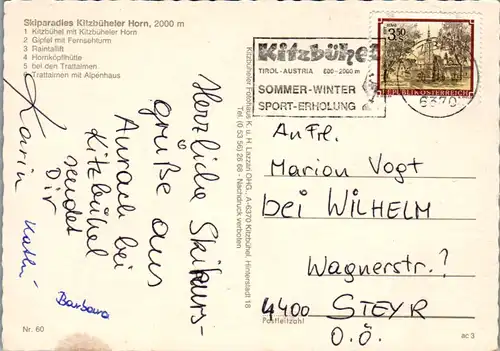 Skiparadies Kitzbüheler Horn, 2000 m
1 Kitzbühel mit Kitzbüheler Horn
2 Gipfel mit Fernsehturm
3 Raintallift
4 Hornköpflhütte
5 bei den Trattalmen
6 Trattalmen mit Alpenhaus
Herzliche Skikurs-
grüße aus
Aurach bei
Kitzbühel
sendet
Dir
Karin
Kathi
Barbara
Nr. 60
Kitzbüheler Fotohaus K. u. H. Lazzari OHG., A-6370 Kitzbühel, Hinterstadt 18
Tel. (0 53 56) 26 68 - Nachdruck verboten
Kitzbühel
TIROL-AUSTRIA 800-2000 m
SOMMER-WINTER
SPORT-ERHOLUNG
3.50
REPUBLIK ÖSTERREICH
6370
An Frl.
Marion Vogt
bei WILHELM
Wagnerstr.?
4400 STEYR
Postleitzahl
O.Ö.
ac 3